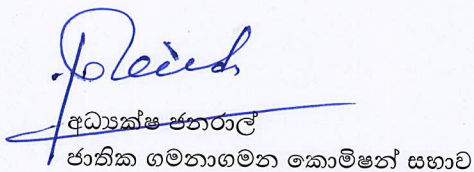 අධ්‍යක්ෂ ජනරාල්
ජාතික ගමනාගමන කොමිෂන් සභාව